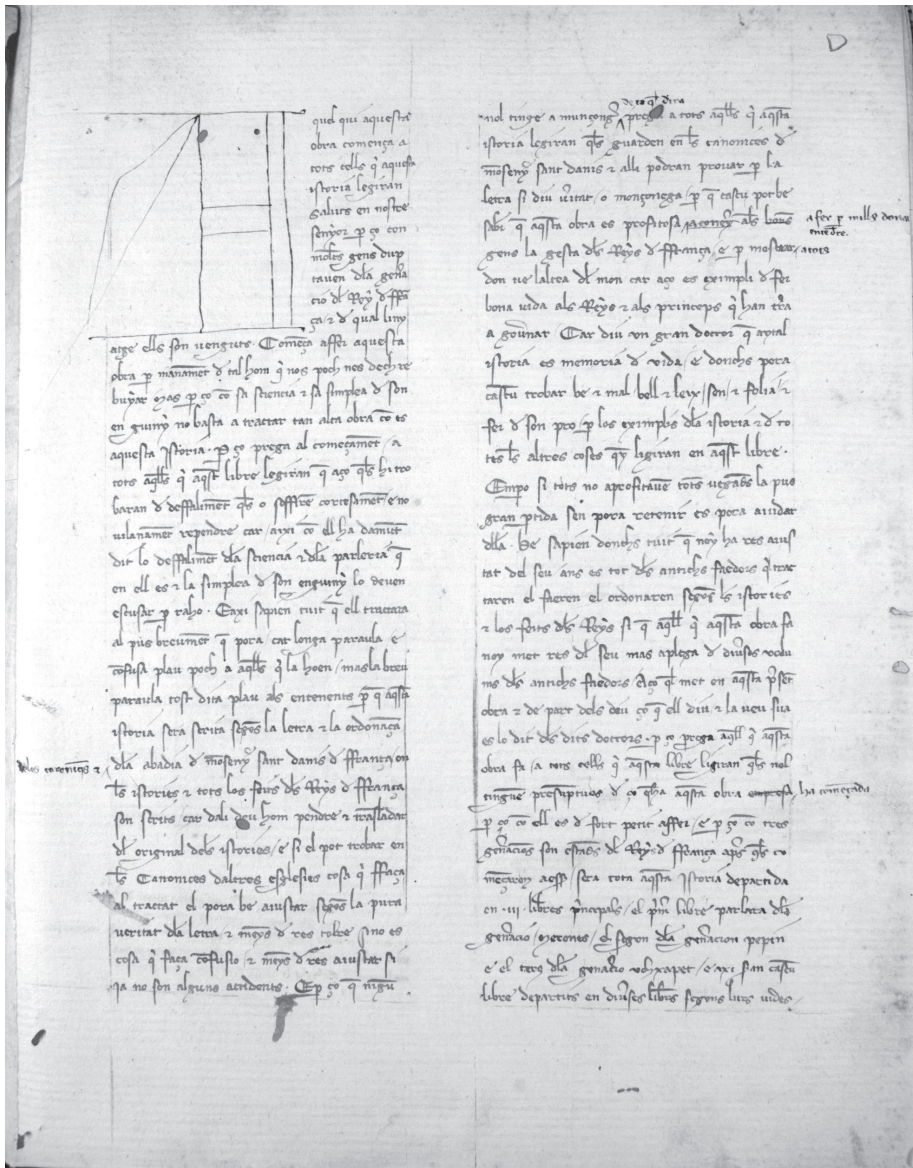 D
quel qui aquesta
obra comença a
tots cells q̃ aquesta
istoria legiran
Saluts en nostre
senyor p̱ ço con
moltes gens dup
tauen dla gen̄a
cio dl Rey d ffrã
ça / ⁊ d qual liny
atge ells son uenguts. Comẽça affer aquesta
obra p̱ manamẽt d tal hom q̃ nos poch nes dech re
buyar mas p̱ ço cõ sa sciencia ⁊ sa simplea d son
enguiny no basta a tractar tan alta obra cõ es
aquesta Istoria. P̱ ço prega al començamẽt / a
tots aq̃lls q̃ aq̃st libre legiran q̃ aço q̃ls hi tro
baran d deffalimẽt q̃ls o soffrẽ cortesamẽt / e no
uilanamẽt rependre car / axi cõ ell ha damũt
dit lo deffalimẽt dla sciencia ⁊ dla parleria q̃
en ell es ⁊ la simplea d son enguiny lo deuen
escusar p̱ raho. E axi sapien tuit q̃ ell tractara
al pus breumẽt q̃ pora car longa paraula e
cõfusa plau poch a aq̃lls q̃ la hoen / mas la breu
paraula tost dita plau als entenents p̱ q̃ aq̃sta
istoria sera scrita segõs la letra ⁊ la ordonaça
dla abadia d mõseny Sant danis d ffrança / on
ls istories ⁊ tots los feits dls Reys d ffrança
son scrits / car dali deu hom pendre ⁊ trasladar
dl original dels istories / e si el pot trobar en
ls Canonices daltres esglesies cosa q̃ ffaça
al tractat el pora be aiustar segõs la pura
ueritat dla letra ⁊ meys d res tolre sino es
cosa q̃ faça cõfusio ⁊ meys d res aiustar si
ia no son alguns accidents. E p̱ ço q̃ nĩgũ
dles coronicq̃s ⁊
nol tinga a munçong̃ prega a tots aq̃lls q̃ aq̃sta
de ço q̃l dira
istoria legiran q̃ls guarden en ls canonices d
mõseny sant danis ⁊ alli podran prouar p̱ la
letra si diu ũitat / o monçonegua / p̱ q̃ castu pot be
sab̃ q̃ aq̃sta obra es profitosa als bons
a fer p̱ mills donar
entẽdre.
gens la gesta dls Reys d ffrança / e p̱ mostrar
atots
don ue laltea dl mon car aço es eximpli d fer
bona uida als Reys ⁊ als princeps q̃ han tr̃a
a gou̇nar. Car diu vn gran doctor q̃ aytal
istoria es memoria d vida / e donchs pora
castu trobar be ⁊ mal bell ⁊ leix / sen / ⁊ folia / ⁊
fer d son pro / p̱ los eximplis dla istoria ⁊ d to
tes ls altres coses q̃y ligiran en aq̃st libre.
Empo si tots no aprofitauẽ tots uegads la pus
gran p̱tida sen pora retenir es pora aiudar
dlla. He sapien donchs tuit q̃ noy ha res aius
tat del seu ans es tot dls antichs faedors q̃ trac
taren el faeren el ordonaren segõs ls istories
⁊ los feits dls Reys si q̃ aq̃ll q̃ aq̃sta obra fa
noy met res dl seu mas aplega d diũses volu
ms dls antichs faedors Aço q̃ met en aq̃sta p̃sẽt
obra ⁊ de part dels deu ço q̃ ell diu ⁊ la ueu sua
es lo dit dls dits doctors. p̱ ço prega aq̃ll q̃ aq̃sta
obra fa / a tots cells q̃ aq̃sta libre ligiran q̃ls nol
tingue presuptuos d ço q̃ ha aq̃sta obra empresa / ha començada
p̱ ço cõ ell es d fort petit affer / e p̱ ço cõ tres
gen̄acios son estads dl Reys d ffrança ap̃s q̃ls co
mẽçaren aess / sera tota aq̃sta Istoria departida
en .iii. libres p̃ncipals / el p̃m libre parlara dla
gen̄acio / merones / el segon dla gen̄acion pepin
e el terç dla gen̄acio vch xapet / e axi s̃an castu
libre departits en diũses libr̃s segons lurs uides.